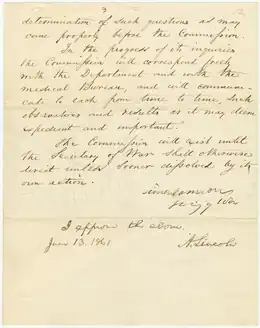 3
determination of such questions as may
come properly before the Commission.
In the progress of its inquiries
the Commission will correspond freely
with the Department and with the
Medical Bureau, and will communi-
cate to each from time to time, such
observations and results as it may deem
expedient and important.
The Commission will exist until
the Secretary of War shall otherwise
direct unless sooner dissolved by its
own action.
Simon Cameron
Sec'y of War
I approve the above.
June 13. 1861. A. Lincoln